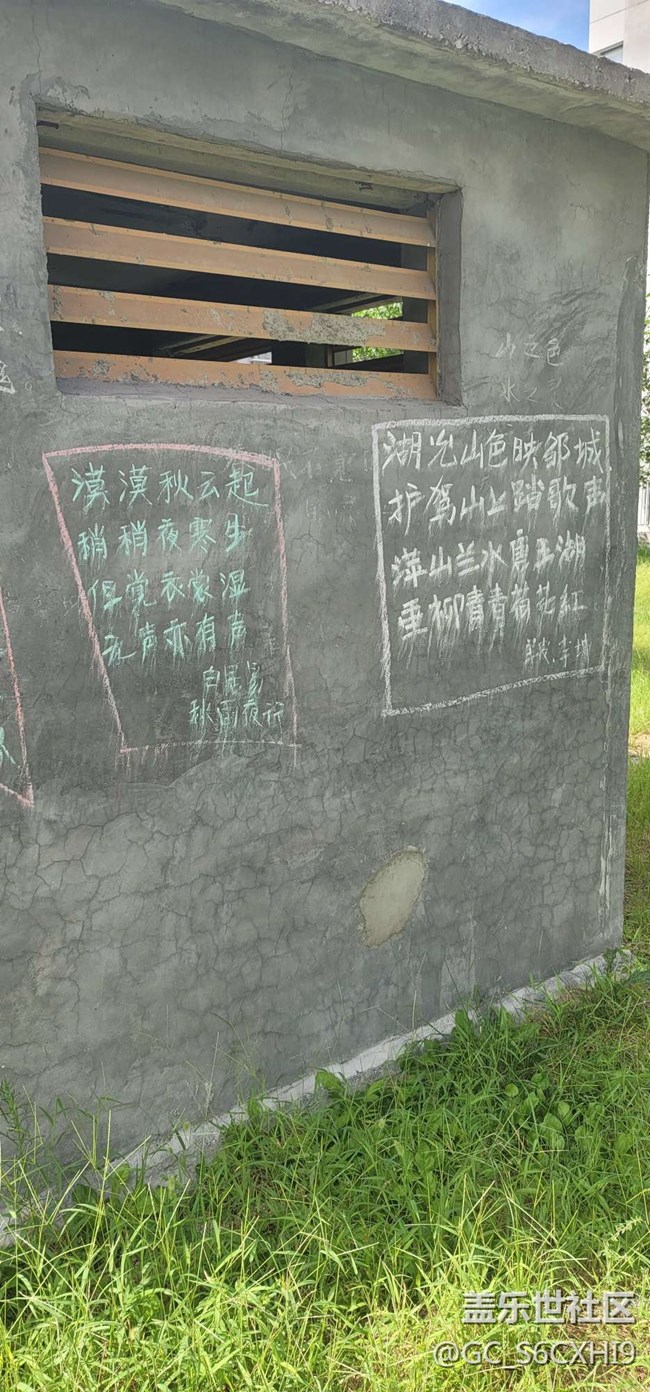 漠漠秋云起
稍稍夜寒生
但觉衣裳湿
无声亦有声
白居易
秋雨夜行
山之色
水之
湖光山色映邹城
护驾山上踏歌声
萍山兰水唐王湖
垂柳青青荷花紅
盖乐世社区
@GC_S6CXHI9